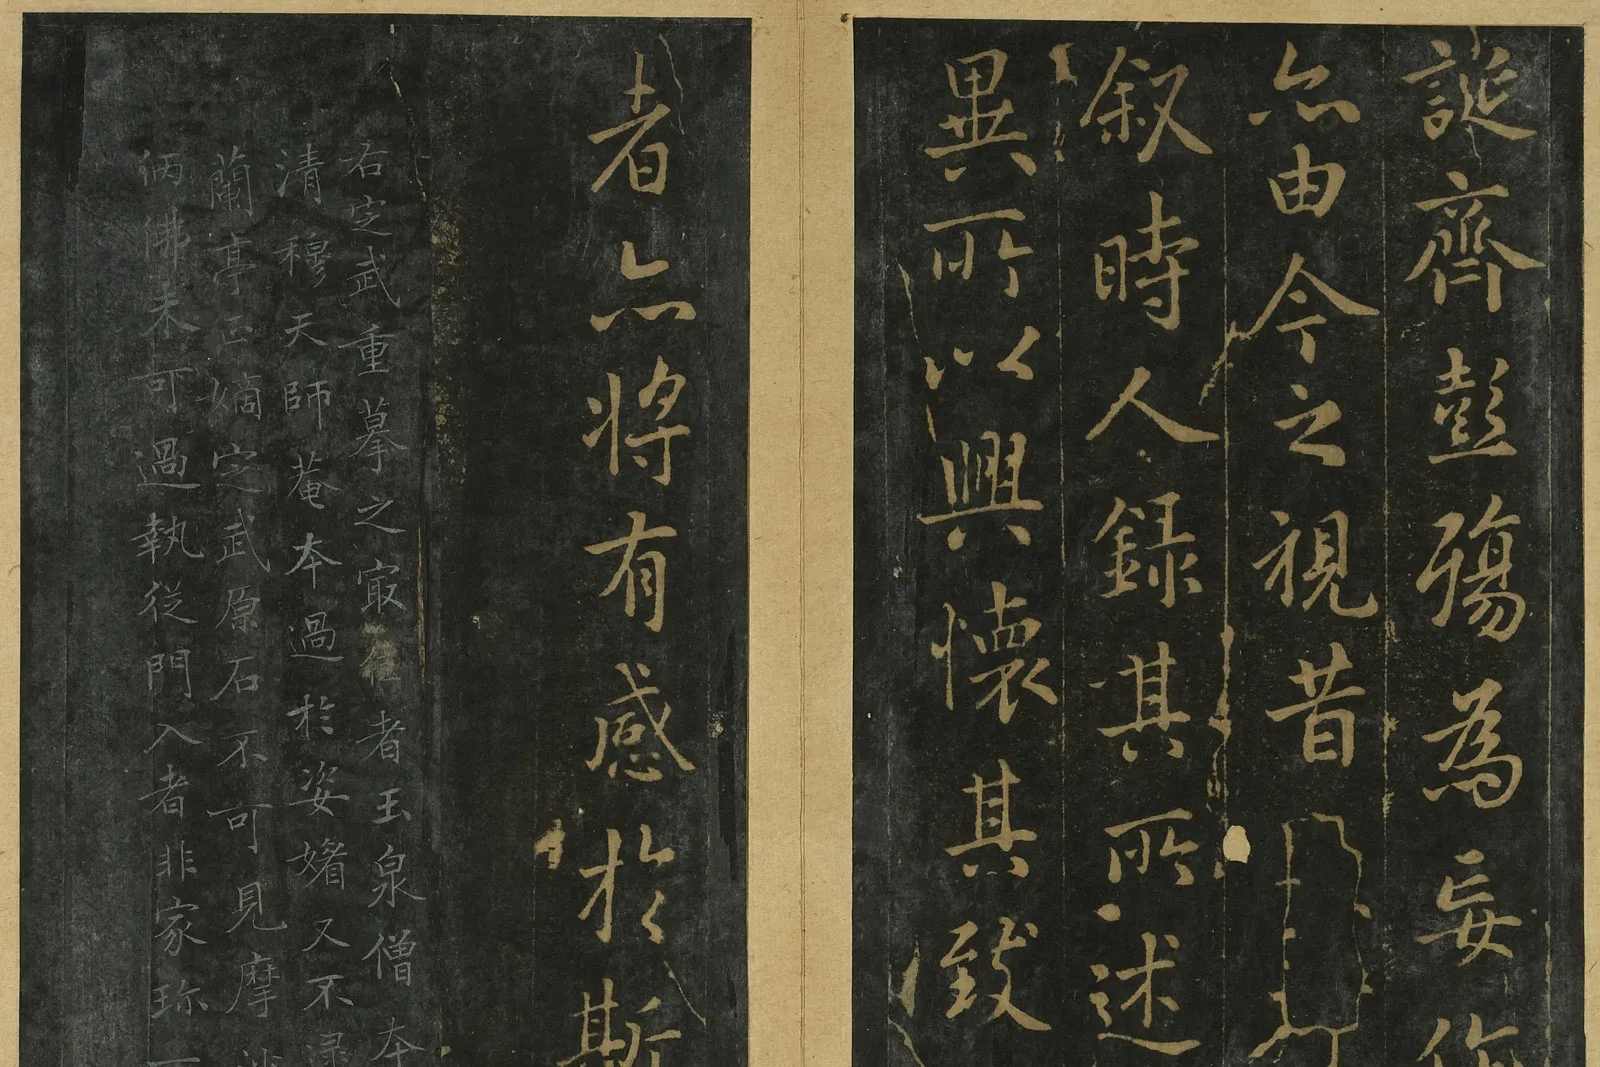 誕齊彭殤為妄作
亦由今之視昔
叙時人録其所述
異所以興懷其致
者亦将有感於斯
右定武重摹之最佳者玉泉僧本
清穆天師菴本過於姿媚又不
蘭亭正嫡定武原石不可見摩
仿佛未可過執從門入者非家珎